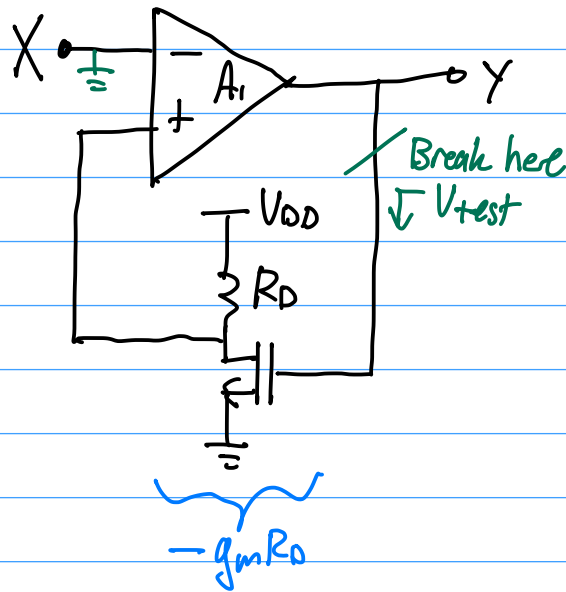 X
−
A₁
+
Y
Break here
V_test
V_DD
R_D
−g_m R_D